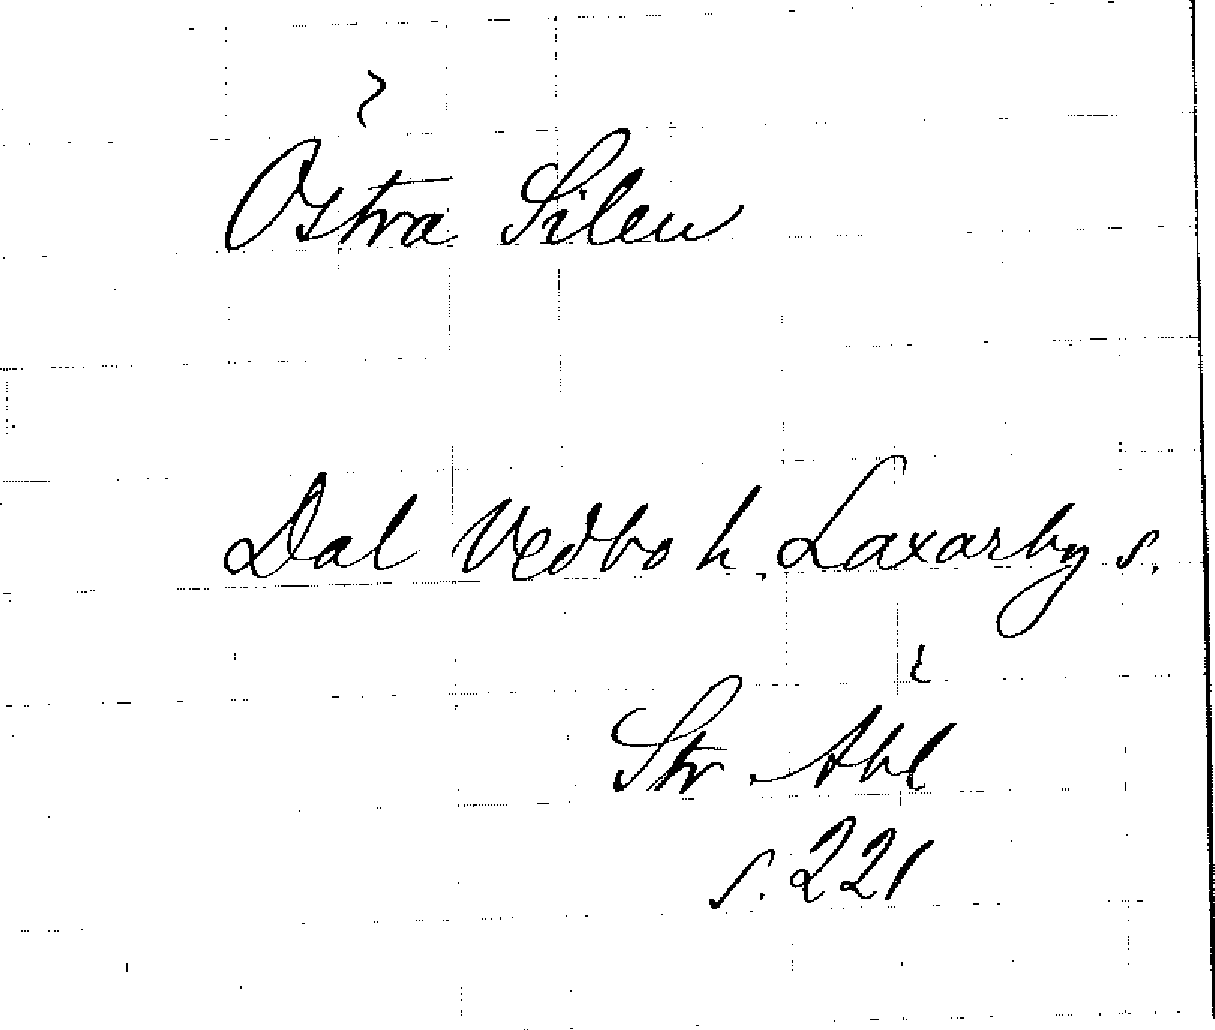 Östra Silen
Dal Vedbo h. Laxarby s.
Str Ahl
s. 221